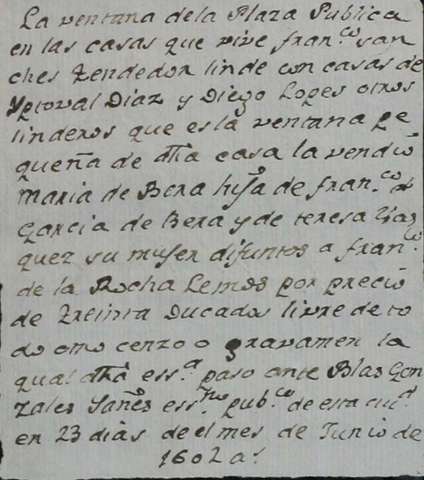 La ventana dela Plaza Publica
en las casas que vive fran.co san
ches Tendedor linde con casas de
Xptoval Diaz y Diego Lopes otros
linderos que es la ventana pe
queña de dha casa la vendio
maria de Bera hija de fran.co
Garcia de Bera y de teresa
quez su muger difuntos a fran.co
de la Rocha Lemos por precio
de Treinta Ducados libre de to
do otro cenzo o gravamen la
qual dha ess.a paso ante Blas Gon
zales Yañes ess.no pub.co de esta ciu.d
en 23 dias de el mes de Junio de
1602 a.s